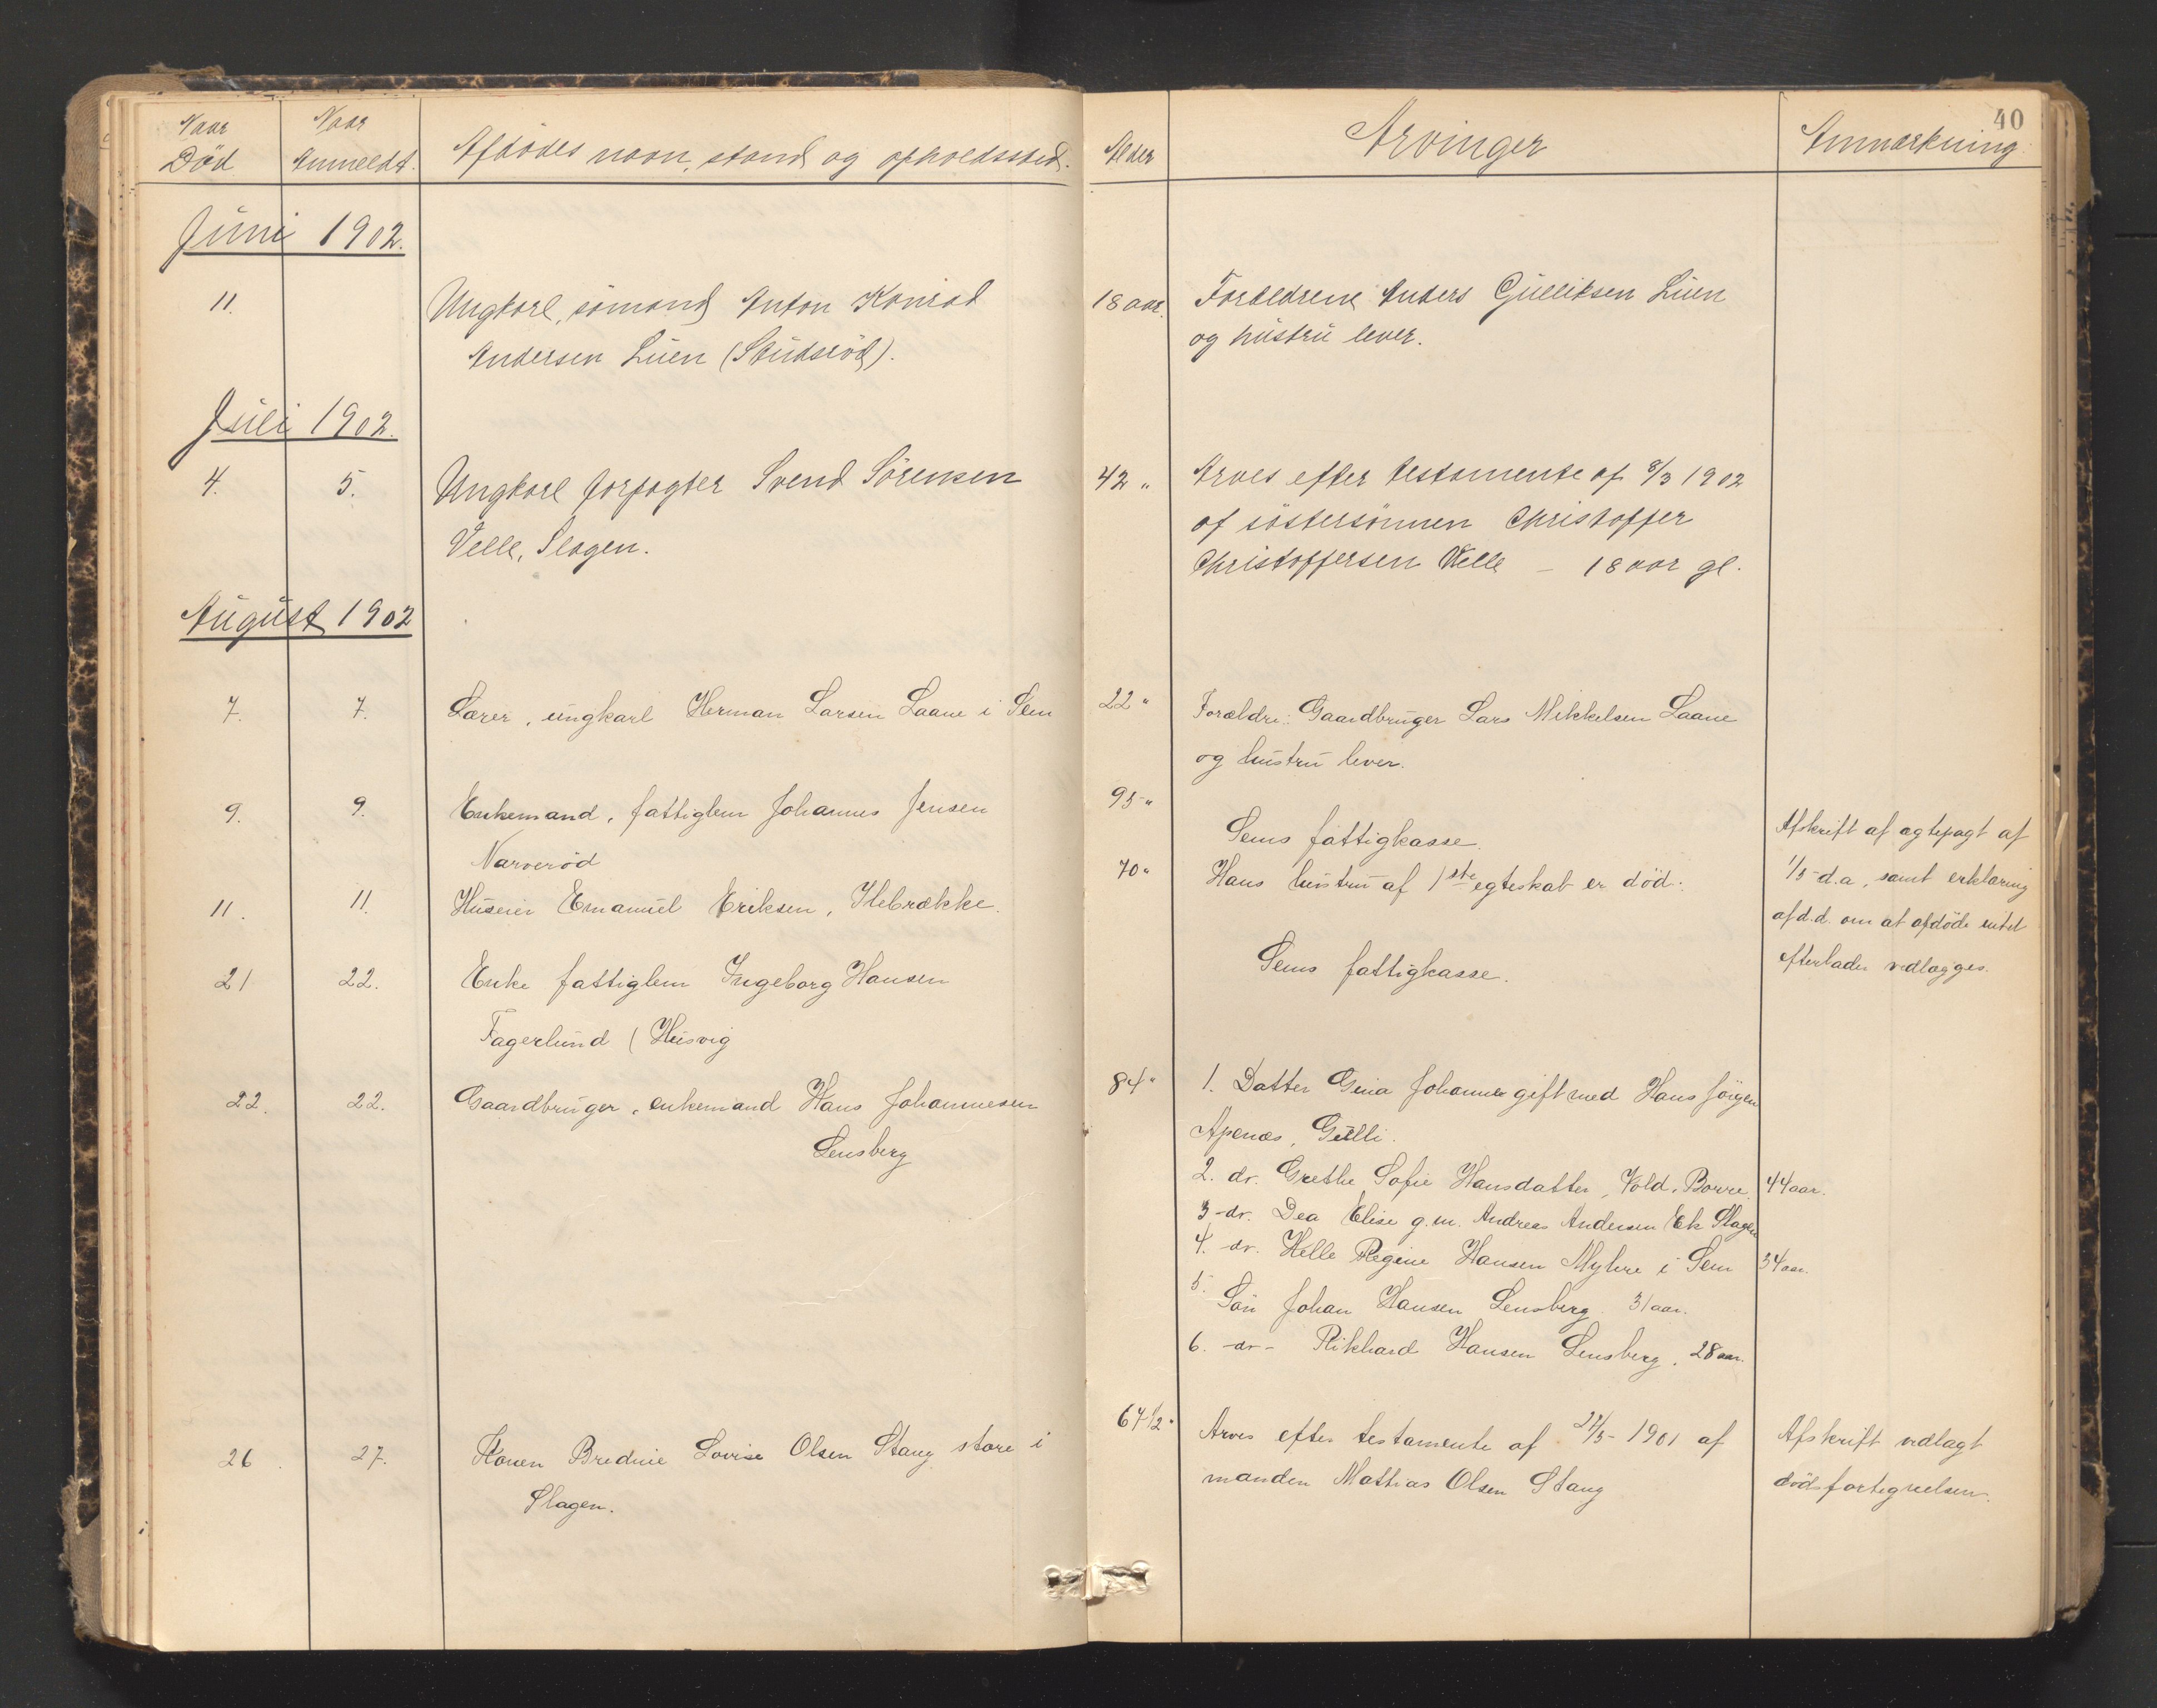 40
Naar Død
Naar Anmeldt.
Afdødes navn, stand og opholdssted.
Alder
Arvinger
Anmærkning
Juni 1902.
11.
Ungkarl, sömand Anton Konrad
Andersen Luen (Studsröd).
18 aar.
Foreldrene Anders Gulliksen Luen
og hustru lever.
Juli 1902.
4.
5.
Ungkarl forpagter Svend Sörensen
Velle, Slagen.
42 "
Arves efter testamente af 8/3 1902
af söstersönnen Christoffer
Christoffersen Velle – 18 aar gl.
August 1902
7.
7.
Lærer, ungkarl Herman Larsen Laane i Sem
22 "
Forældre: Gaardbruger Lars Mikkelsen Laane
og hustru lever.
9.
9.
Enkemand, fattiglem Johannes Jensen
Narveröd
95 "
Sems fattigkasse.
11.
11.
Huseier Emanuel Eriksen, Ilebrække.
70 "
Hans hustru af 1ste egteskab er död.
Afskrift af ægtepagt af
1/5 d.a, samt erklæring
af d.d. om at afdöde intet
efterlader vedlægges.
21
22.
Enke fattiglem Ingeborg Hansen
Fagerlund (Husvig
Sems fattigkasse.
22.
22.
Gaardbruger, enkemand Hans Johannesen
Lensberg
84 "
1. Datter Gina Johanne gift med Hans Jörgen
Apenæs, Gulli.
2. dr. Grethe Sofie Hansdatter, Vold, Borre. 44 aar.
3 - dr. Dea Elise g.m. Andreas Andersen Ek Slagen
4. dr. Helle Regine Hansen Myhre i Sem 34 aar.
5. Sön Johan Hansen Lensberg. 31 aar.
6. - dr - Rikhard Hansen Lensberg, 28 aar.
26.
27.
Konen Bredine Lovise Olsen Stang store i
Slagen.
64 1/2 "
Arves efter testamente af 24/5 - 1901 af
manden Mathias Olsen Stang
Afskrift vedlagt
dödsfortegnelsen.